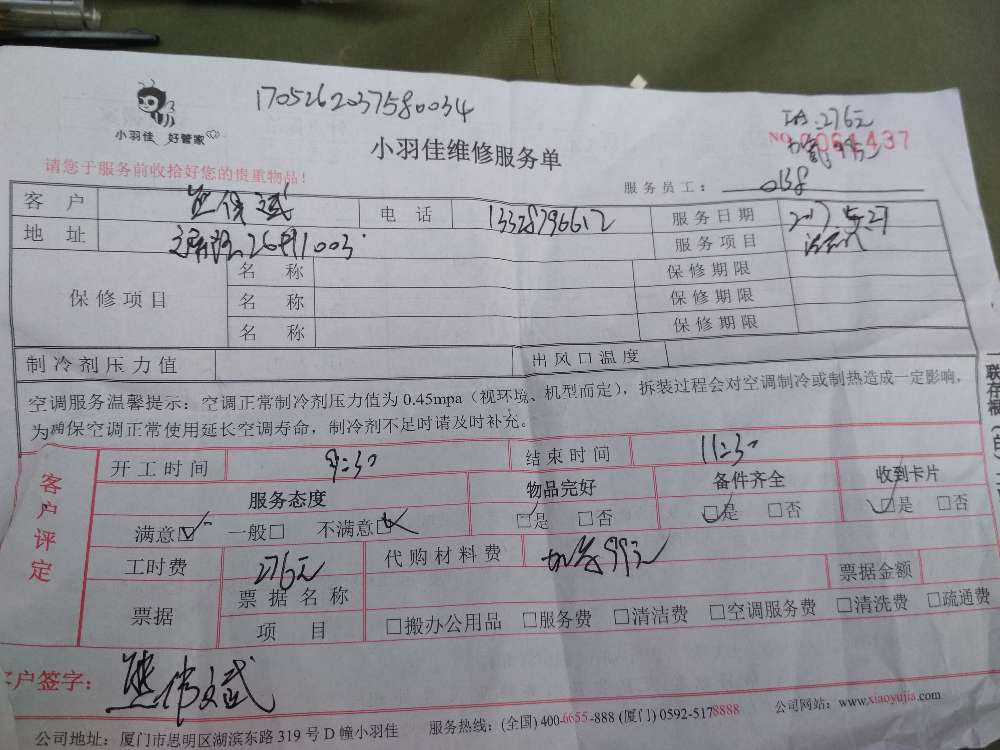 170526203758 0034
工时:276元
小羽佳 好管家
小羽佳维修服务单
NO. 064437
请您于服务前收拾好您的贵重物品!
服务员工: 0138
客户 电话 13328796612 服务日期 2017 5.27
地址 26#1003 服务项目
保修项目 名称 保修期限
名称 保修期限
名称 保修期限
制冷剂压力值 出风口温度
空调服务温馨提示:空调正常制冷剂压力值为 0.45mpa(视环境、机型而定),拆装过程会对空调制冷或制热造成一定影响,
为确保空调正常使用延长空调寿命,制冷剂不足时请及时补充。
客户评定
开工时间 9:30 结束时间 11:30
服务态度 物品完好 备件齐全 收到卡片
满意☑ 一般□ 不满意□ □是 □否 □是 □否 □是 □否
工时费 276元 代购材料费 加氟99元 票据金额
票据 票据名称
项目 □搬办公用品 □服务费 □清洁费 □空调服务费 □清洗费 □疏通费
客户签字: 熊伟斌
公司地址:厦门市思明区湖滨东路 319 号 D 幢小羽佳 服务热线:(全国) 400-6655-888 (厦门) 0592-5178888 公司网站:www.xiaoyujia.com